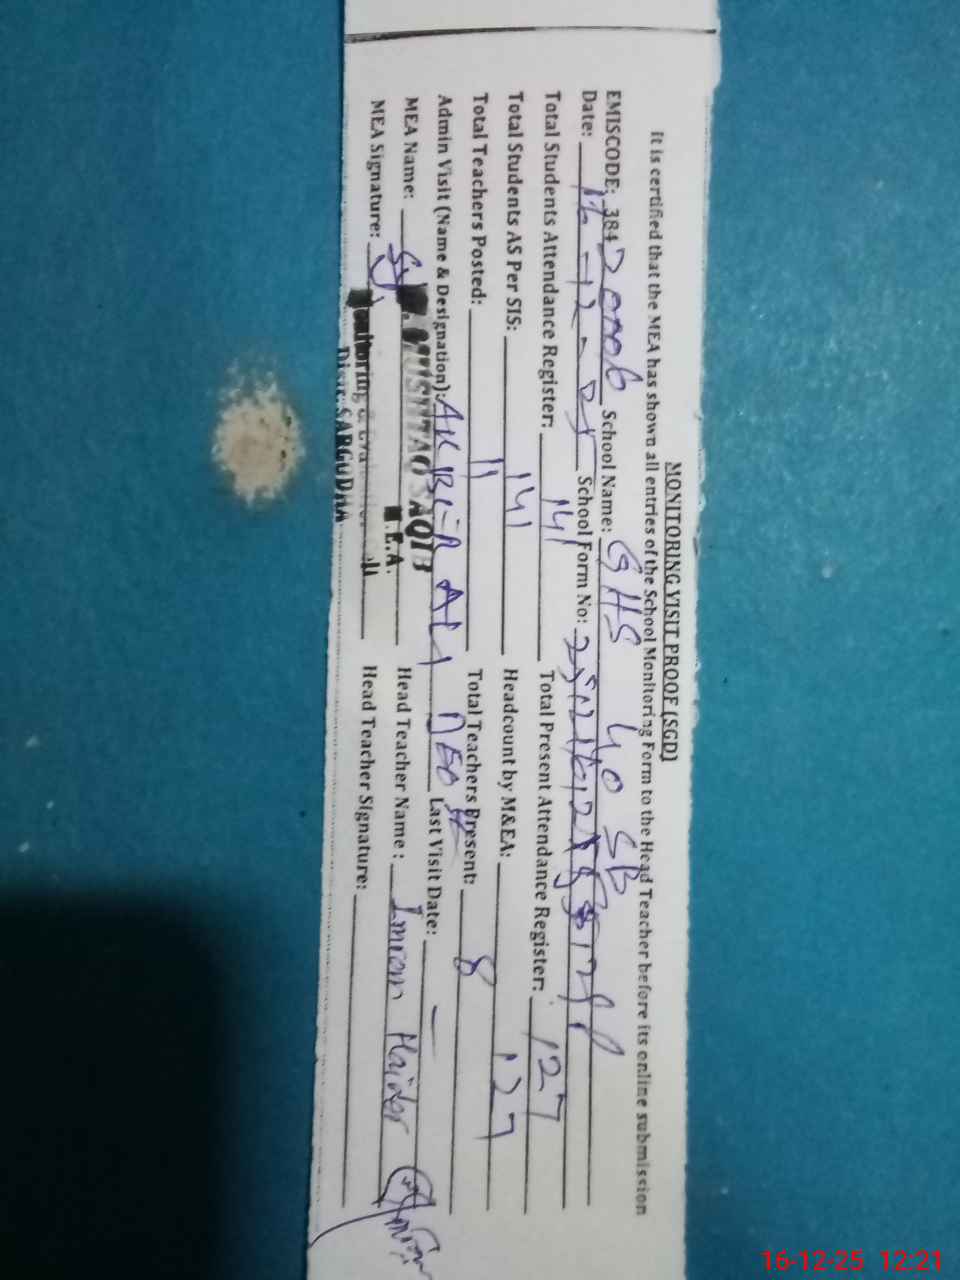 MONITORING VISIT PROOF (SGD)
It is certified that the MEA has shown all entries of the School Monitoring Form to the Head Teacher before its online submission
EMISCODE: 38420006 School Name: GHS 40 SB
Date: 16-12-25 School Form No:
Total Students Attendance Register: 141 Total Present Attendance Register: 127
Total Students AS Per SIS: 141 Headcount by M&EA: 127
Total Teachers Posted: 11 Total Teachers Present: 8
Admin Visit (Name & Designation): AKBER ALI DEO Last Visit Date: —
MEA Name: MUSHTAQ SAQIB Head Teacher Name: Imran Haider
M.E.A.
MEA Signature: Head Teacher Signature:
Monitoring &
Distt: SARGODHA
16-12-25 12:21